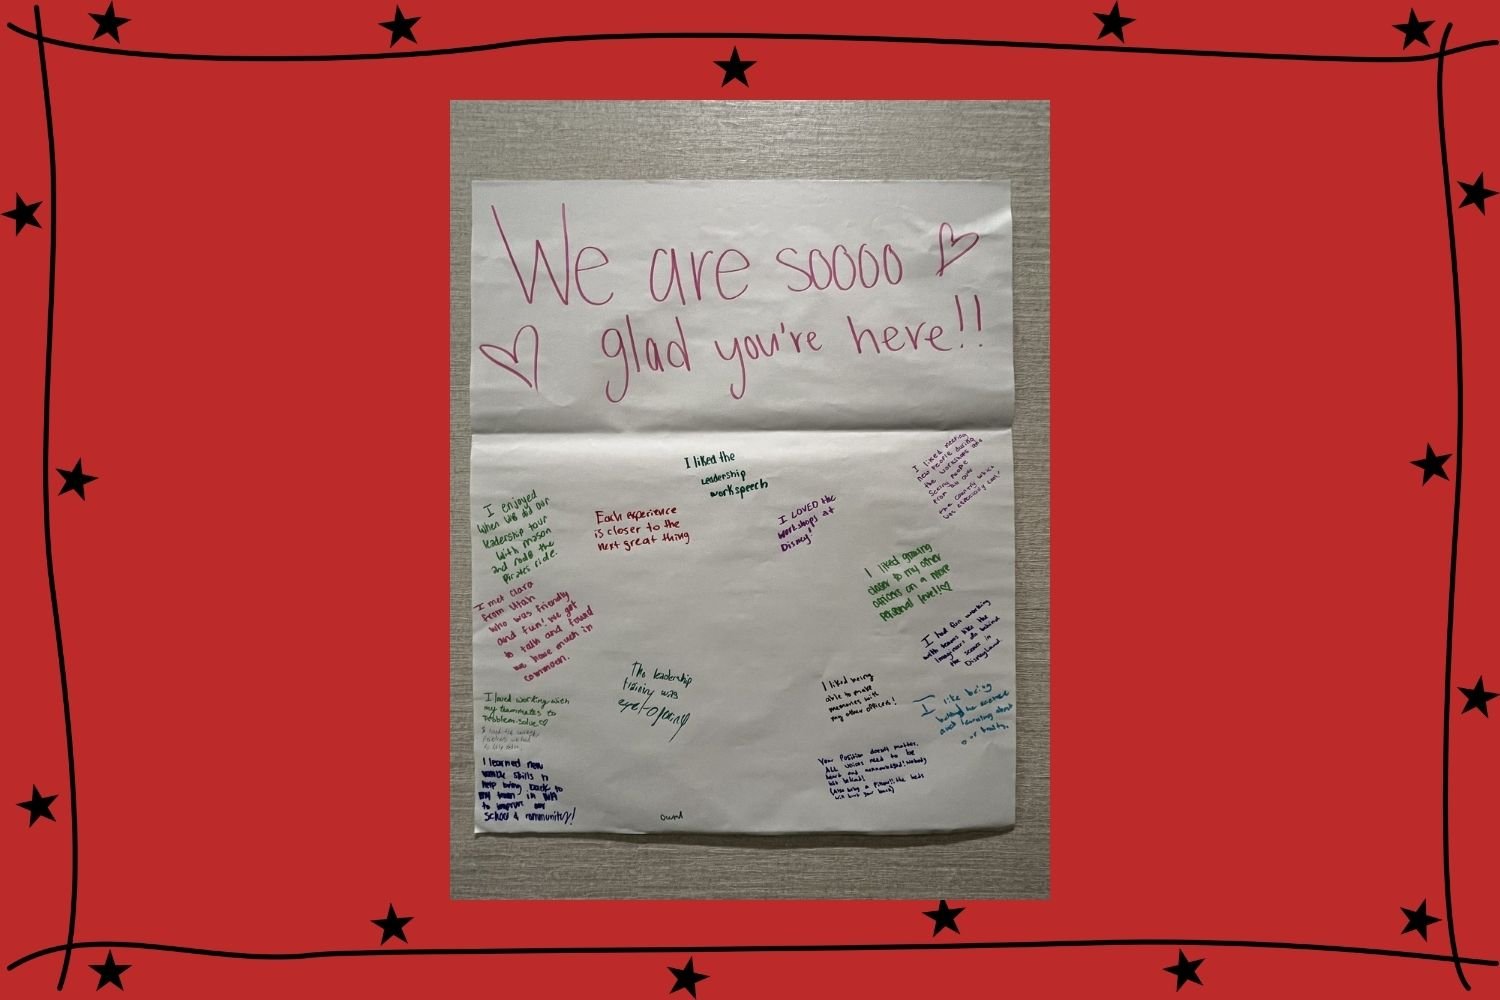 We are soooo
glad you're here!!
I liked the
Leadership
workspeech
I liked meeting
new people during
the workshops and
Seeing people
from all over
the country which
was especially cool!
I enjoyed
when we did our
leadership tour
with mason
and rode the
Pirates ride.
Each experience
is closer to the
next great thing
I LOVED the
workshops at
Disney!
I liked growing
closer to my other
officers on a more
personal level!
I met Clara
from Utah
who was friendly
and fun! We got
to talk and found
we have much in
common.
I had fun working
with teams like the
imagineers do behind
the scenes in
Disneyland
The leadership
training was
eye-opening
I liked being
able to make
memories with
my other officers!
I like being
and learning about
I loved working with
my teammates to
Problem solve
I learned new
skills to
help bring back to
my team in
to improve our
school & community!
Your Position doesn't matter.
ALL voices need to be
heard and acknowledged! Nobody
left behind!
(Also bring a Pillow!! the beds
will hurt your back)